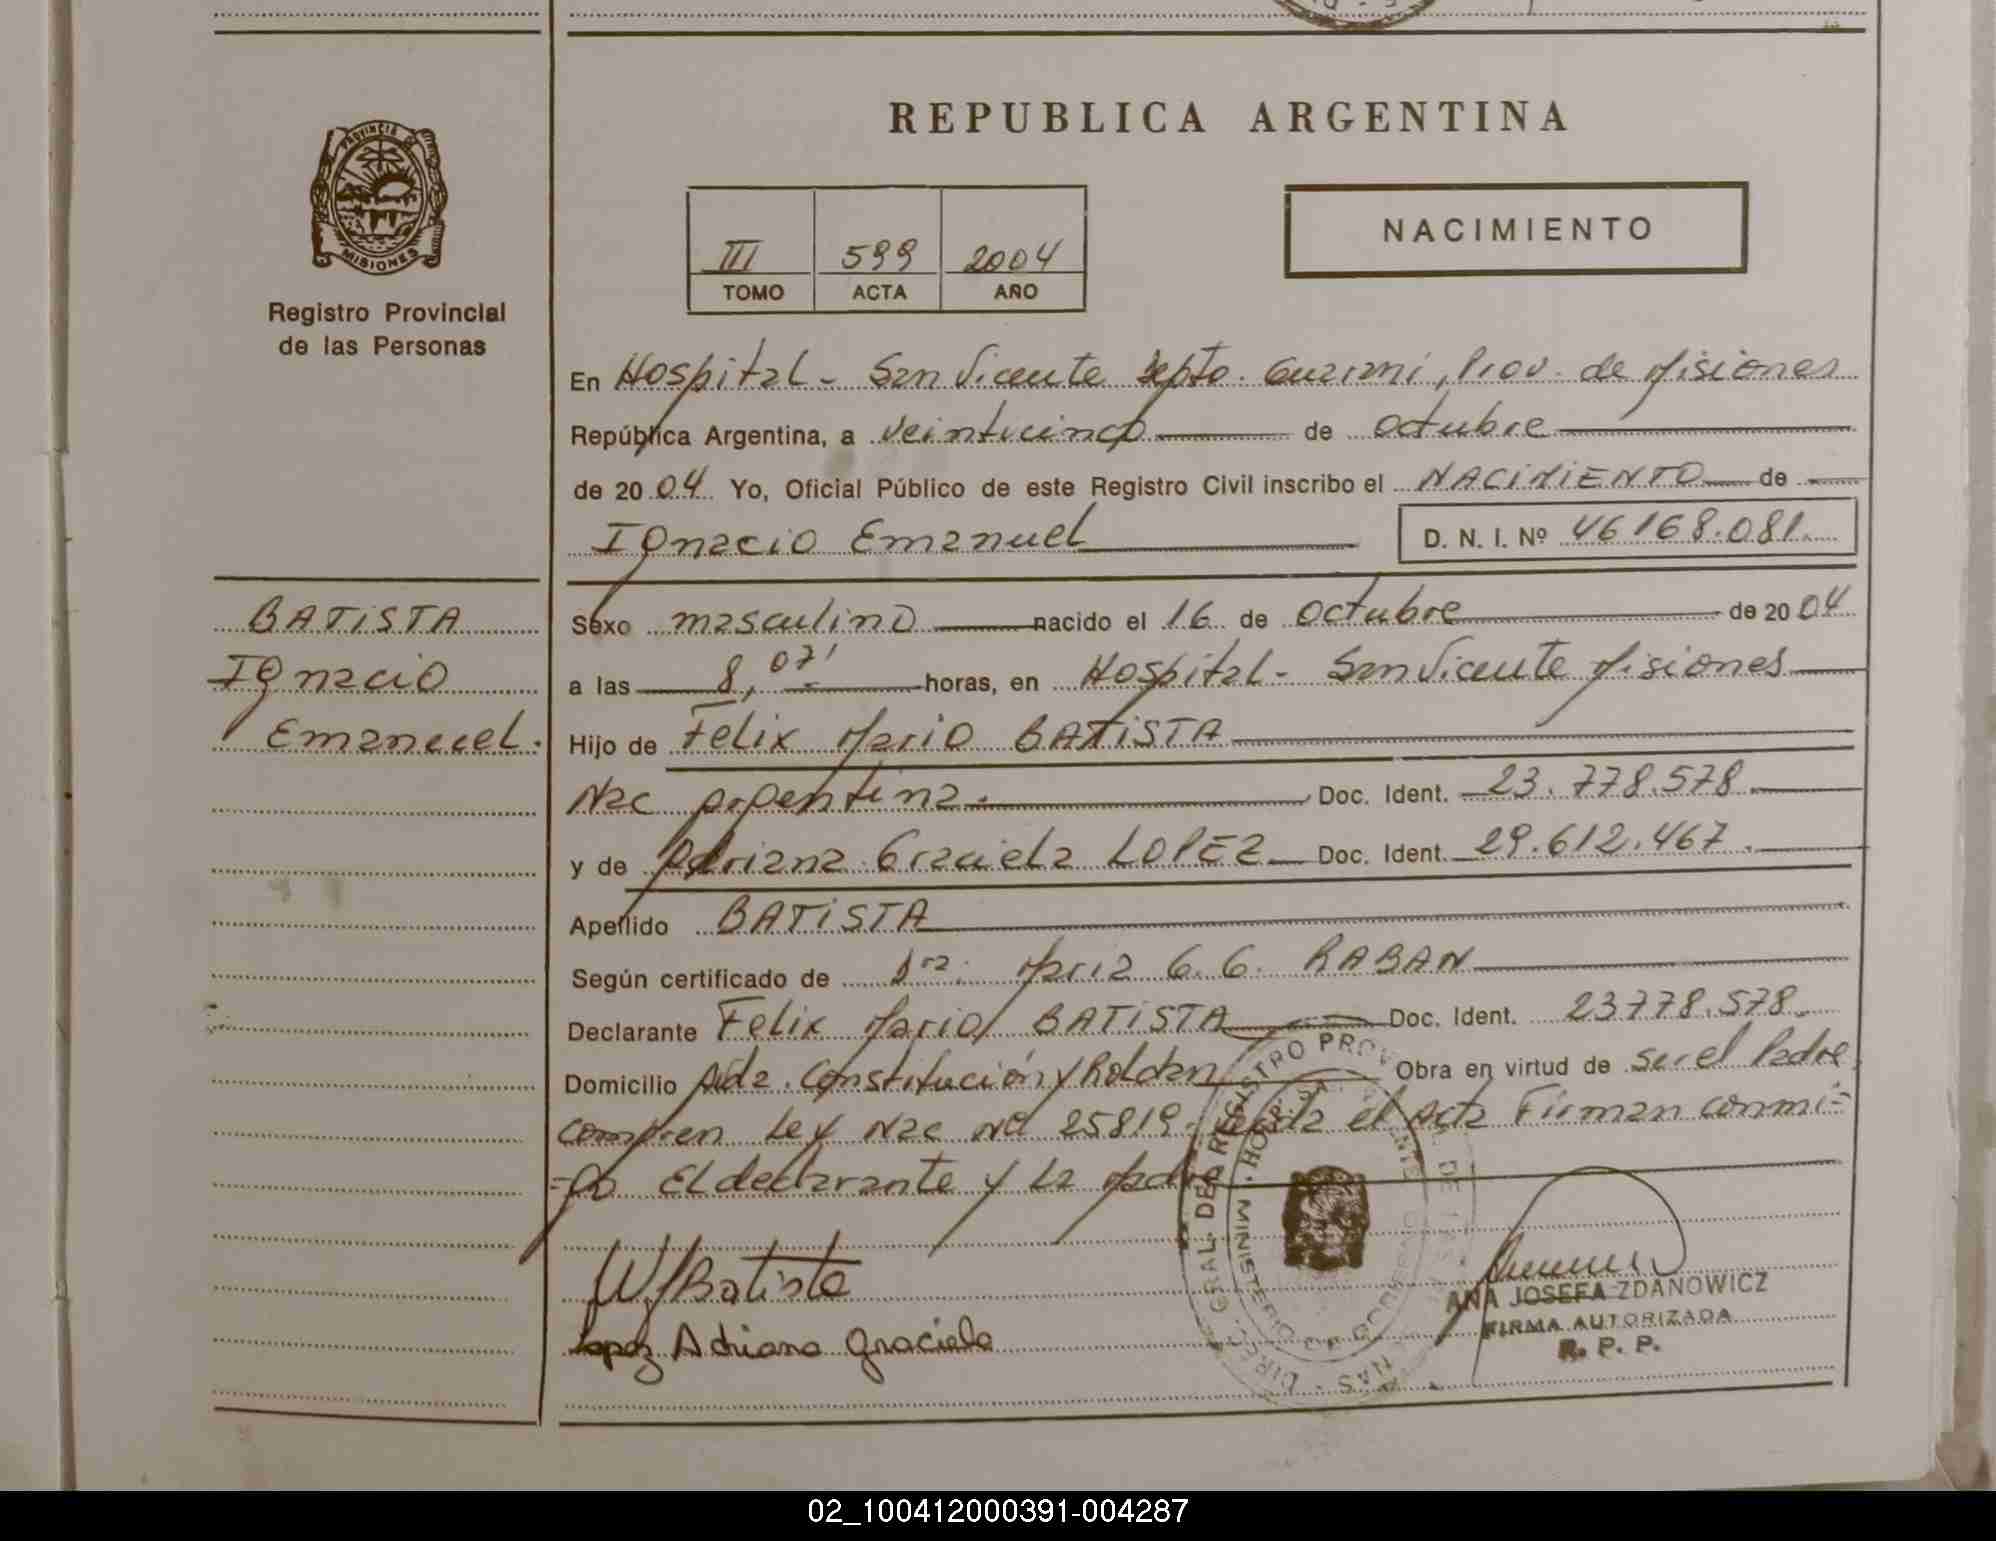 REPUBLICA ARGENTINA
PROVINCIA DE MISIONES
Registro Provincial
de las Personas
III 599 2004
TOMO ACTA AÑO
NACIMIENTO
En Hospital - San Vicente Depto. Guaraní, Prov. de Misiones
República Argentina, a veinticinco de octubre
de 2004 Yo, Oficial Público de este Registro Civil inscribo el NACIMIENTO de
Ignacio Emanuel D. N. I. Nº 46168.081.
BATISTA
Ignacio
Emanuel.
Sexo masculino nacido el 16 de octubre de 2004
a las 8,07' horas, en Hospital - San Vicente Misiones
Hijo de Felix Mario BATISTA
Nac argentina. Doc. Ident. 23.778.578.
y de Adriana Graciela LOPEZ Doc. Ident. 29.612.467.
Apellido BATISTA
Según certificado de Dra. Maria G. G. RABAN
Declarante Felix Mario BATISTA Doc. Ident. 23778.578.
Domicilio Avda. Constitución y Roldan Obra en virtud de ser el Padre
Ley Nac Nº 25819. el Acta Firman conmi=
=go El declarante y La Madre
Batista
Lopez Adriana Graciela
ANA JOSEFA ZDANOWICZ
FIRMA AUTORIZADA
R. P. P.
02_100412000391-004287